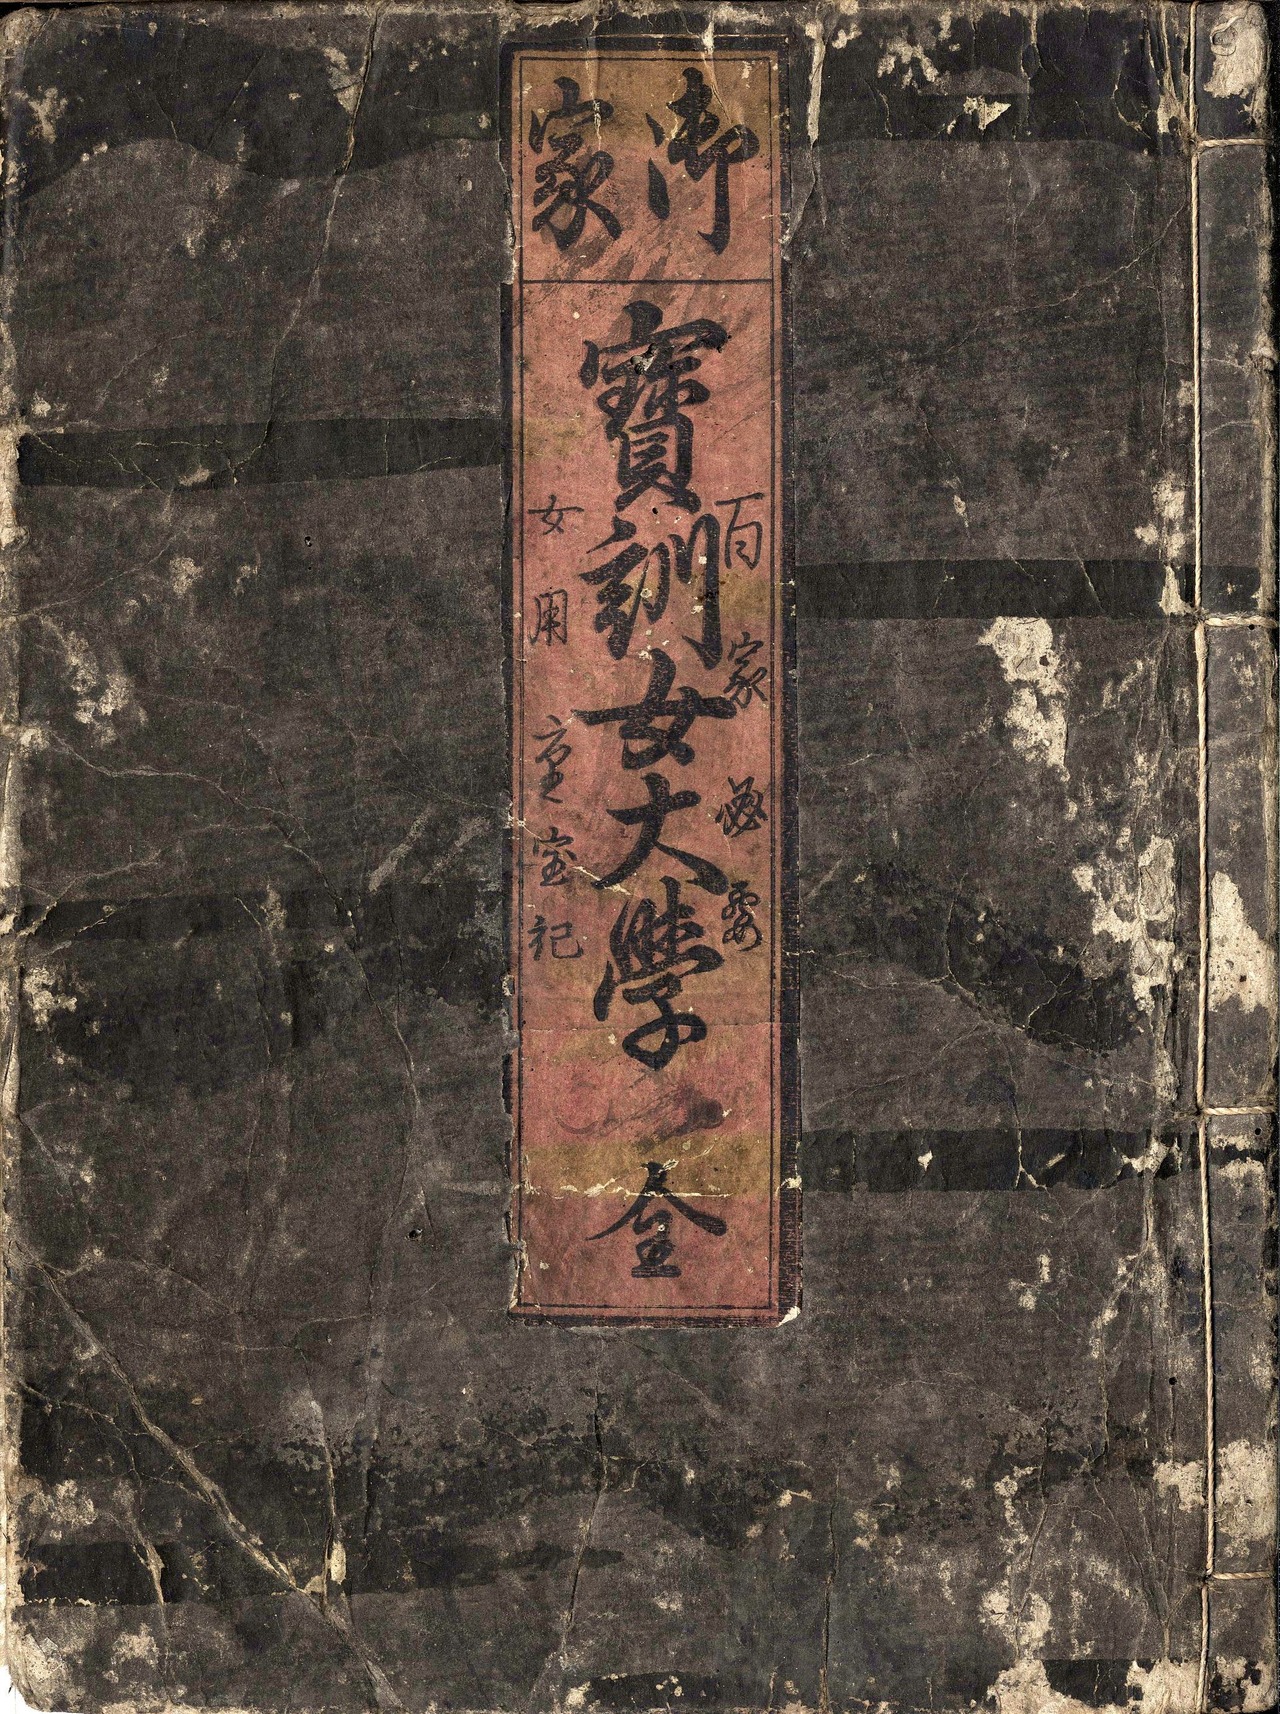 御家
百家必要
寶訓女大學
女用重宝記
全